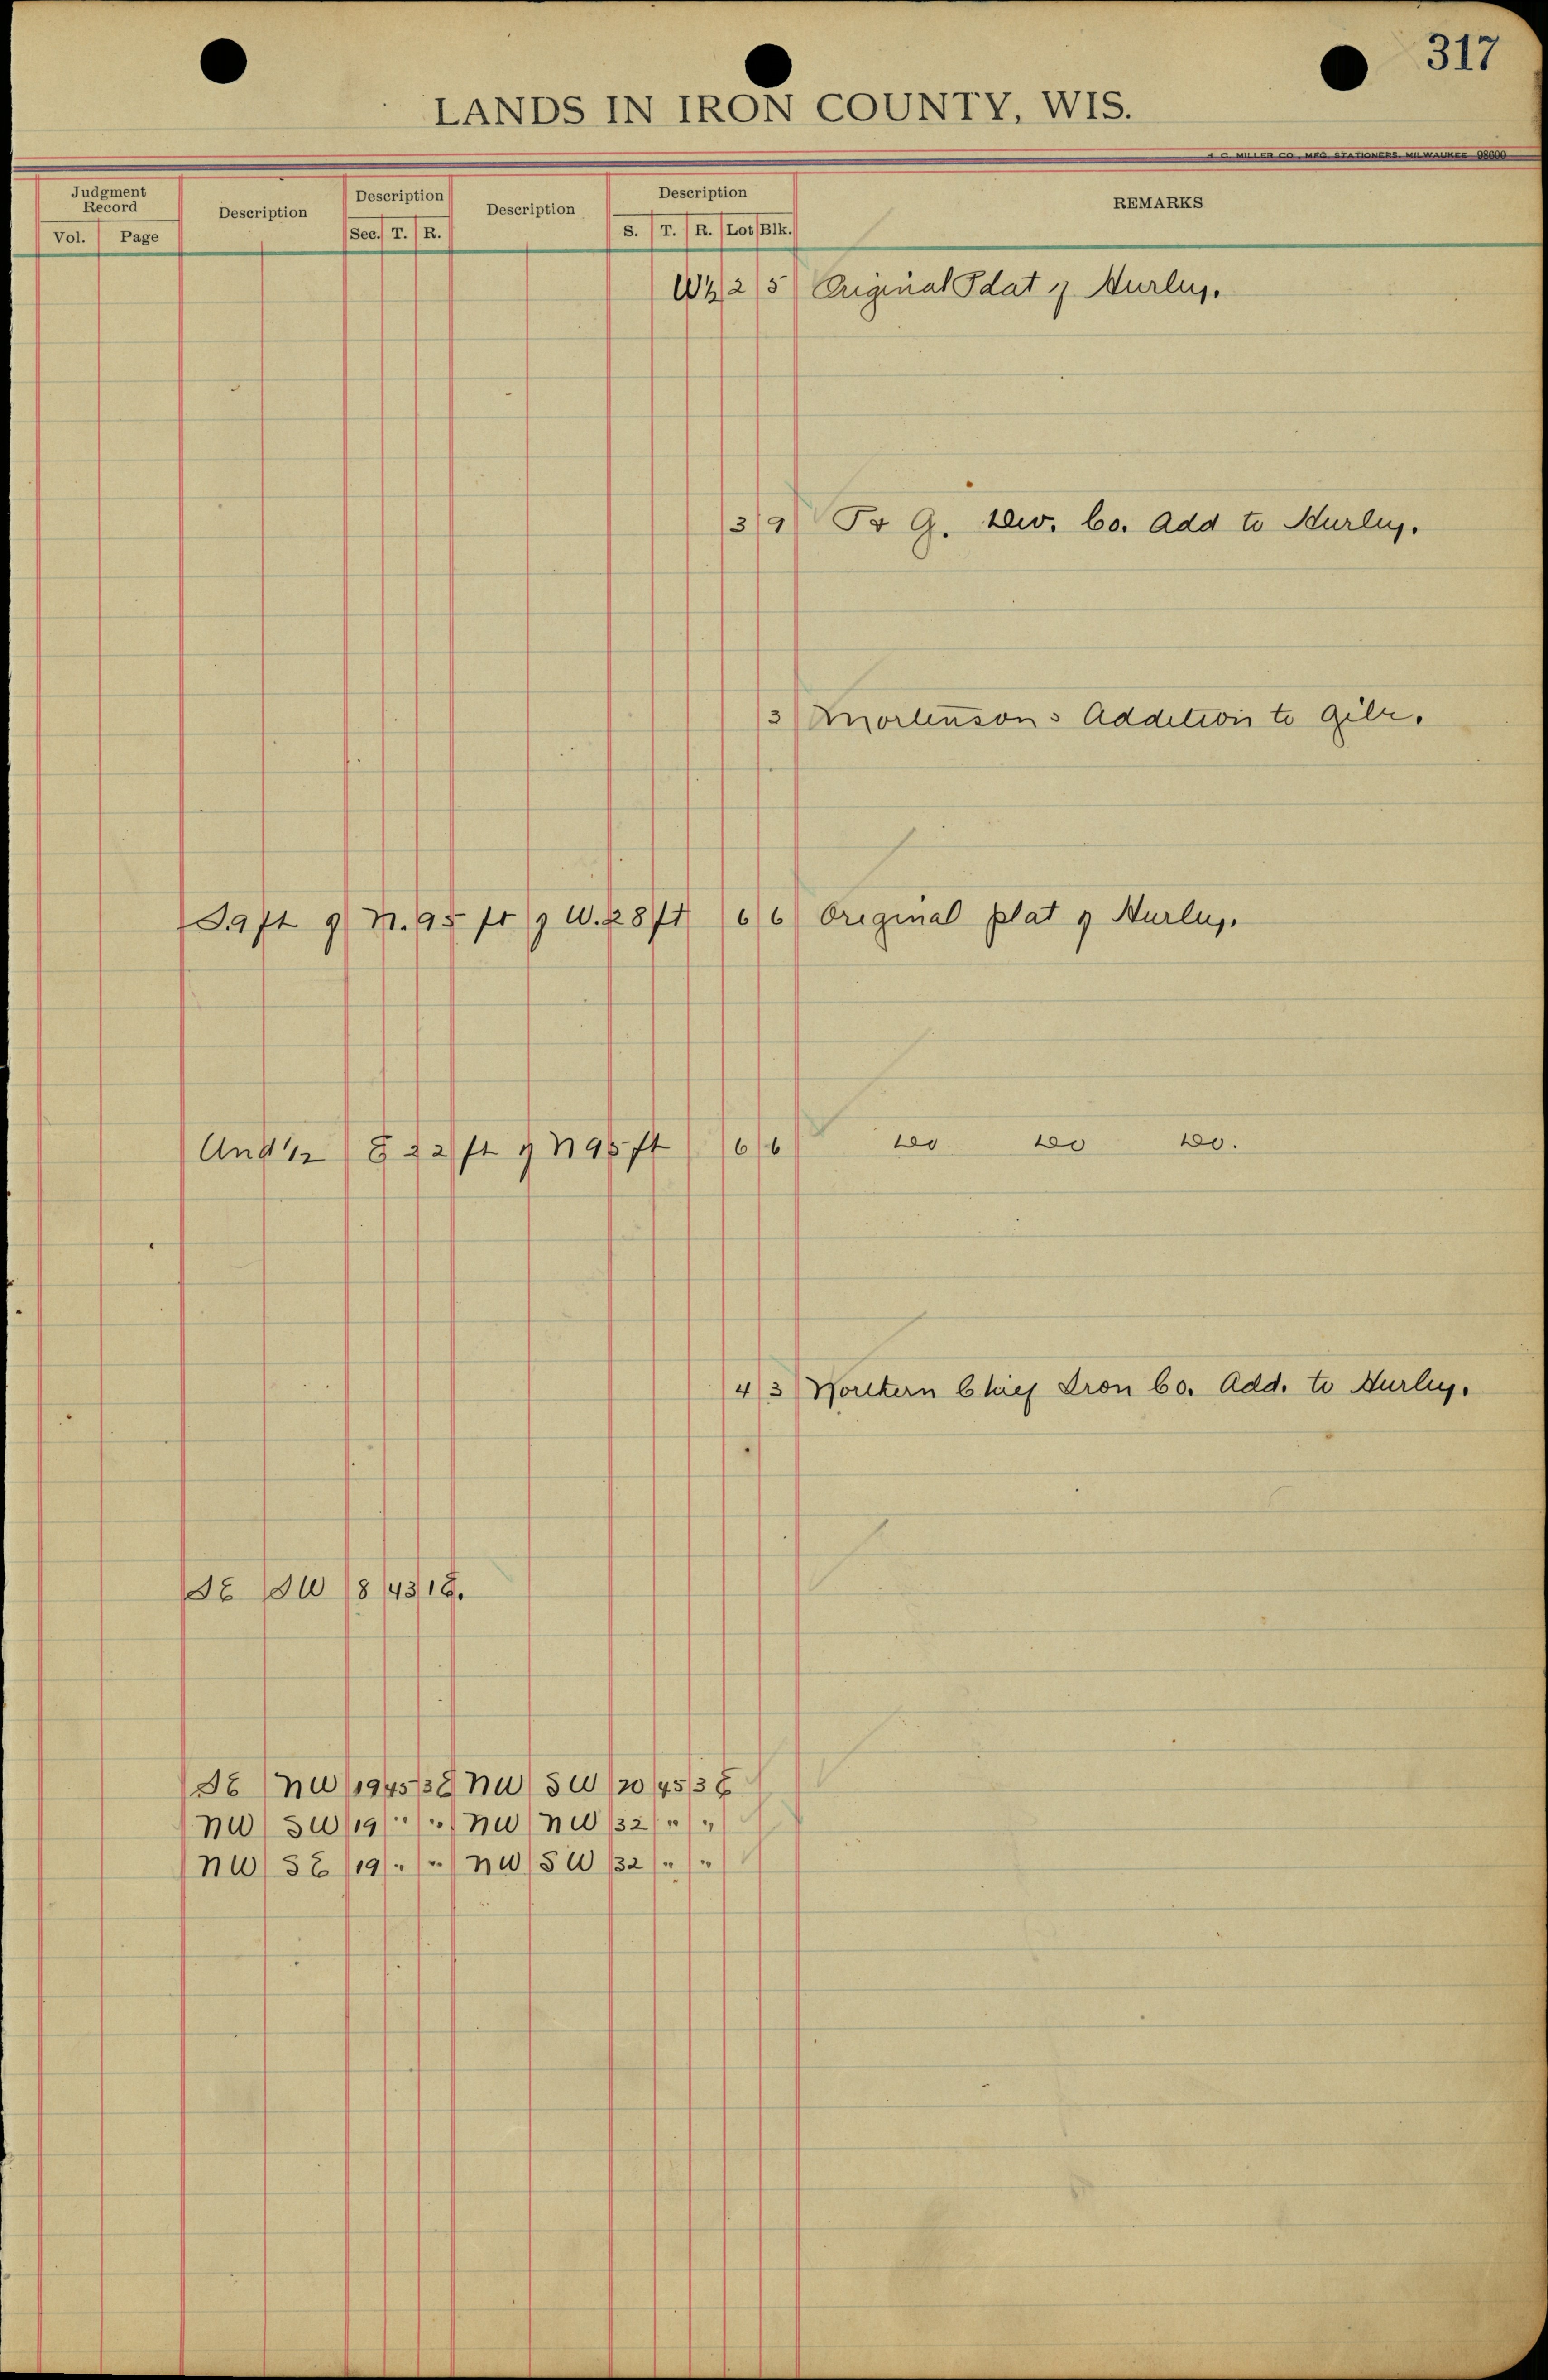 317
LANDS IN IRON COUNTY, WIS.
H. C. MILLER CO., MFG. STATIONERS, MILWAUKEE 98600
Judgment Record Description Description Description Description REMARKS
Vol. Page Sec. T. R. S. T. R. Lot Blk.
W½ 2 5 Original Plat of Hurley.
3 9 P & G. Dev. Co. Add to Hurley.
3 Mortenson's Addition to Gile.
S. 9 ft of N. 95 ft of W. 28 ft 6 6 Original plat of Hurley.
Und 1/2 E 22 ft of N 95 ft 6 6 do do do.
4 3 Northern Chief Iron Co. Add. to Hurley.
SE SW 8 43 1E.
SE NW 19 45 3E NW SW 20 45 3E
NW SW 19 " " NW NW 32 " "
NW SE 19 " " NW SW 32 " "